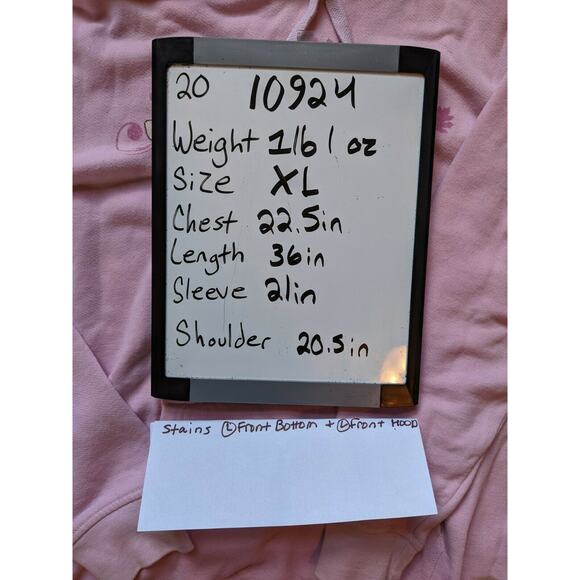 20 10924
Weight 1lb 1 oz
Size XL
Chest 22.5in
Length 36in
Sleeve 21in
Shoulder 20.5in
Stains Ⓛ Front Bottom + Ⓛ Front HOOD